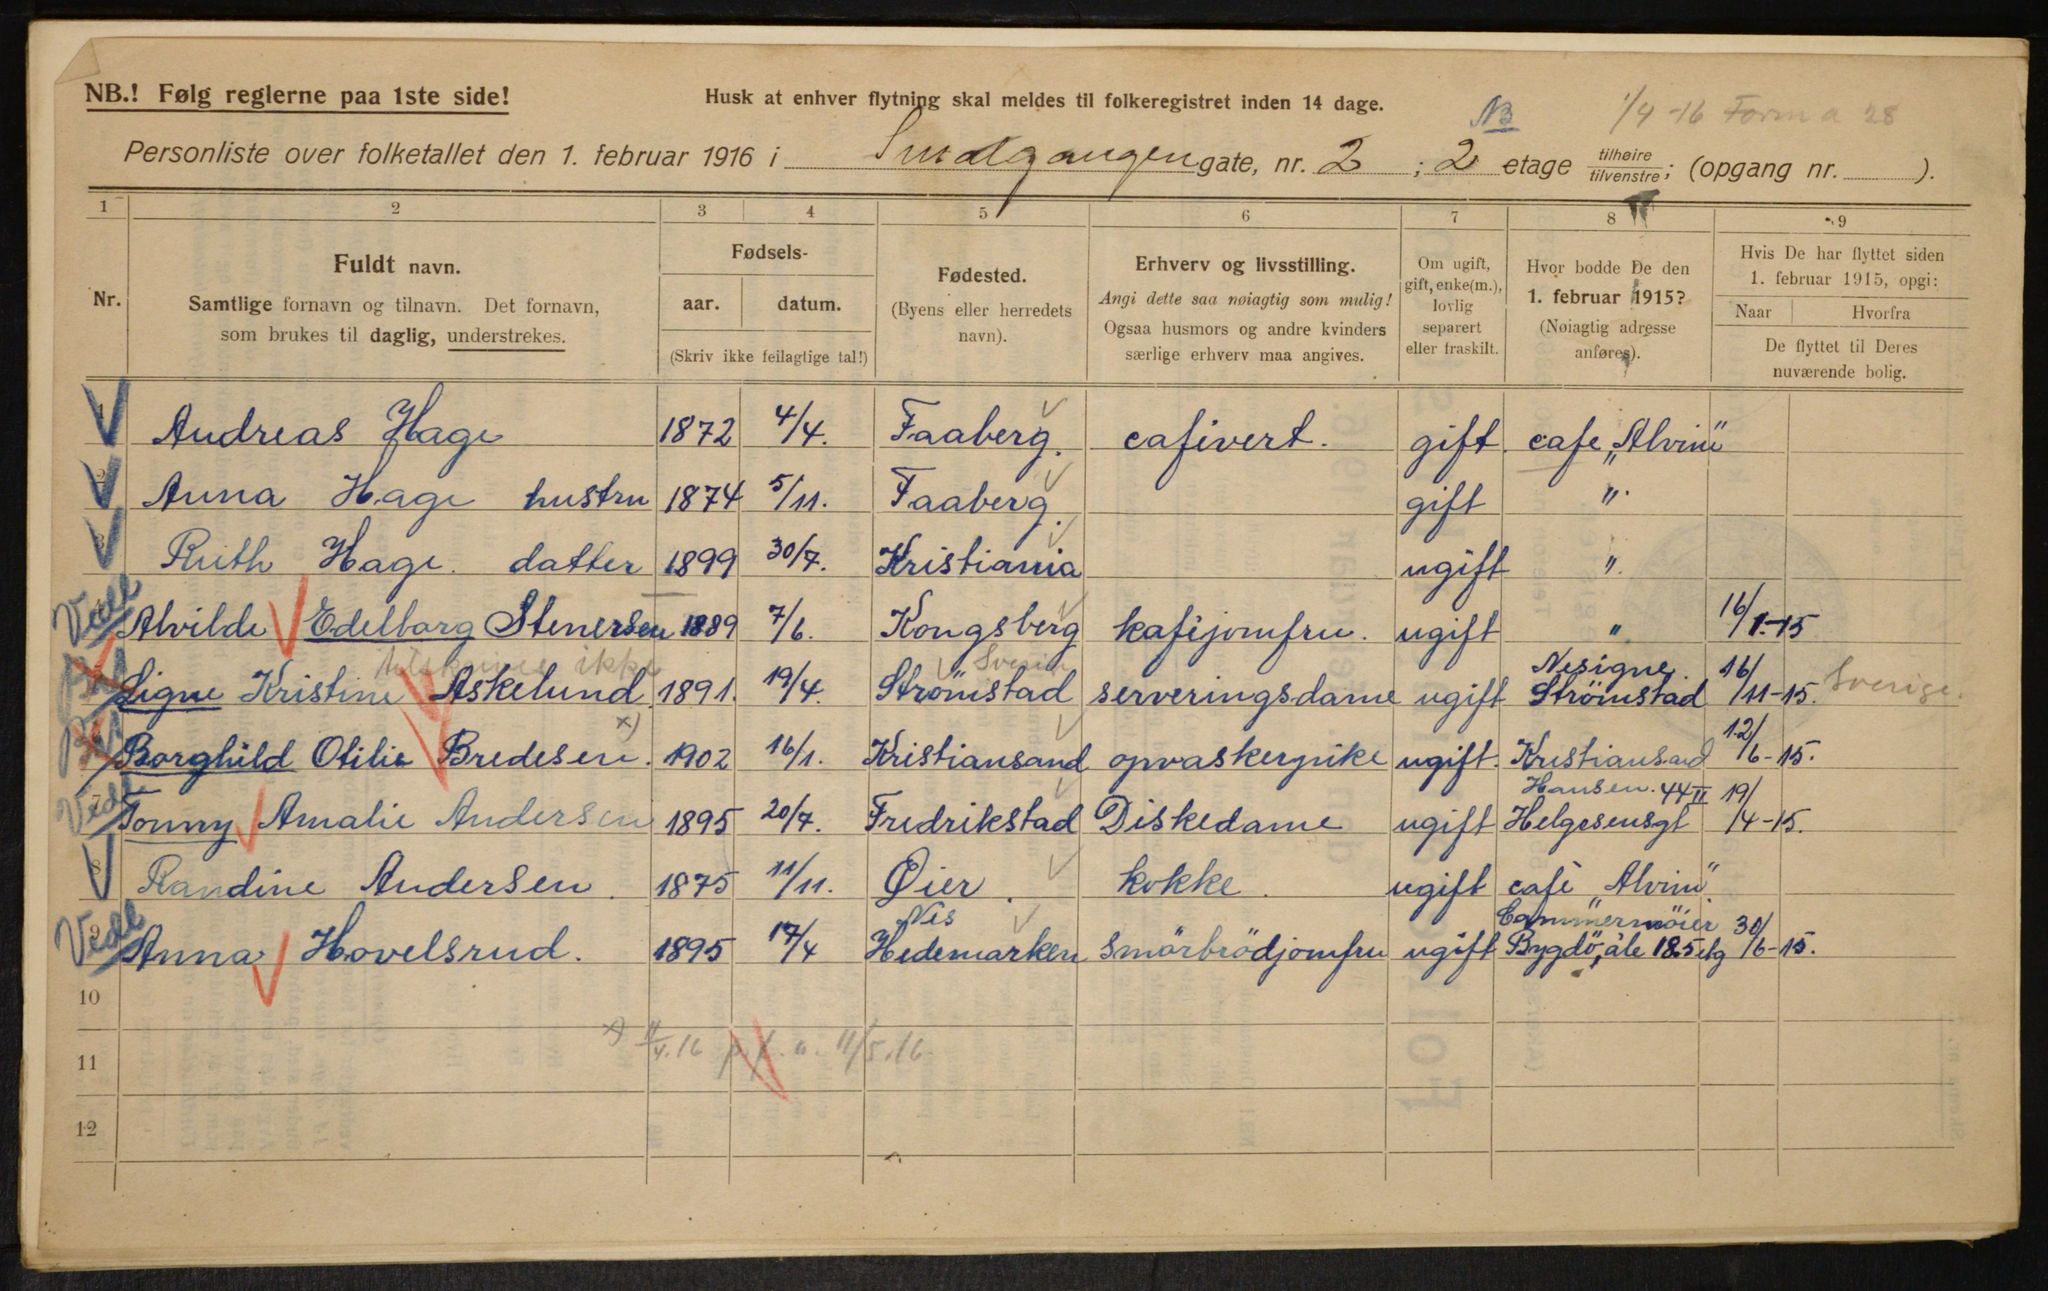 NB.! Følg reglerne paa 1ste side!
Husk at enhver flytning skal meldes til folkeregistret inden 14 dage.
NB
1/4-16 Forma 28
Personliste over folketallet den 1. februar 1916 i Smalgangen gate, nr. 2 ; 2 etage tilhøire tilvenstre ; (opgang nr. ).
1 2 3 4 5 6 7 8 9
Nr.
Fuldt navn.
Samtlige fornavn og tilnavn. Det fornavn,
som brukes til daglig, understrekes.
Fødsels-
aar. datum.
(Skriv ikke feilagtige tal!)
Fødested.
(Byens eller herredets
navn).
Erhverv og livsstilling.
Angi dette saa nøiagtig som mulig!
Ogsaa husmors og andre kvinders
særlige erhverv maa angives.
Om ugift,
gift, enke(m.),
lovlig
separert
eller fraskilt.
Hvor bodde De den
1. februar 1915?
(Nøiagtig adresse
anføres).
Hvis De har flyttet siden
1. februar 1915, opgi:
Naar Hvorfra
De flyttet til Deres
nuværende bolig.
1 Andreas Hage 1872 4/4. Faaberg. cafivert. gift cafe "Alvin"
2 Anna Hage hustru 1874 5/11. Faaberg. gift "
3 Ruth Hage. datter 1899 30/7. Kristiania ugift "
Vedl
4 Alvilde Edelborg Stenersen 1889 7/6. Kongsberg kafijomfru. ugift " 16/1.-15
ikke
Sverige
Signe Kristine Askelund. 1891. 19/4. Strömstad serveringsdame ugift Nesigne Strömstad 16/11-15. Sverige.
x)
Borghild Otilie Bredesen. 1902 16/1. Kristiansand opvaskerpike ugift. Kristiansand 12/6-15.
Vedl
7 Tonny Amalie Andersen 1895 20/7. Fredrikstad Diskedame ugift Hansen. 44 II Helgesensgt 19/4-15.
8 Randine Andersen. 1875 11/11. Øier. kokke. ugift café "Alvin"
Vedl
9 Anna Hovelsrud. 1895 17/4 Nes Hedemarken Smörbrödjomfru ugift Cammermöier Bygdö, ale 18.5 etg 30/6-15.
10
x) 11/4.16 11/5.16
11
12